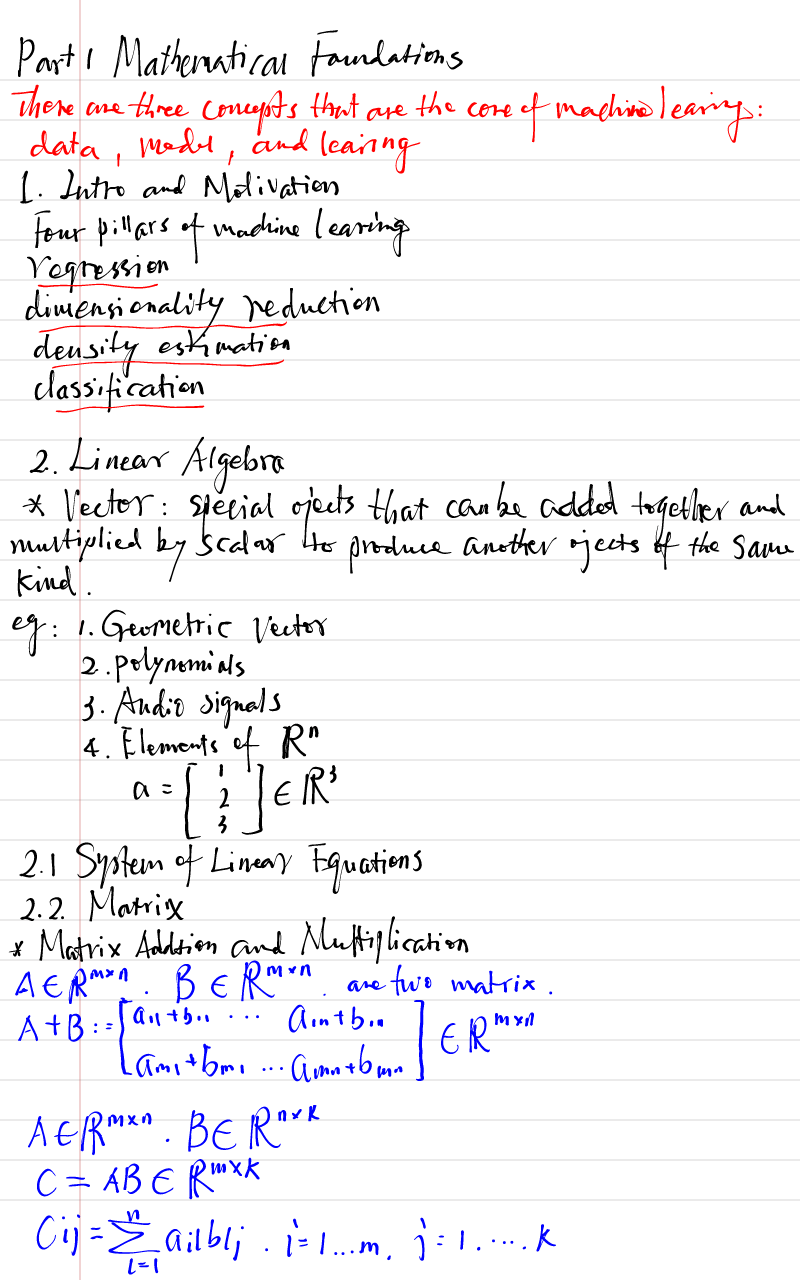 Part 1 Mathematical Foundations
There are three concepts that are the core of machine learing:
data, model, and learing
1. Intro and Motivation
Four pillars of machine learing
regression
dimensionality reduction
density estimation
classification
2. Linear Algebra
* Vector: special ojects that can be added together and
multiplied by scalar to produce another ojects of the same
kind.
eg: 1. Geometric Vector
2. polynomials
3. Audio signals
4. Elements of ℝⁿ
a = [1 2 3] ∈ ℝ³
2.1 System of Linear Equations
2.2. Matrix
* Matrix Addtion and Multiplication
A ∈ ℝ^{m×n}. B ∈ ℝ^{m×n}. are two matrix.
A+B := [a₁₁+b₁₁ ... a₁ₙ+b₁ₙ
aₘ₁+bₘ₁ ... aₘₙ+bₘₙ] ∈ ℝ^{m×n}
A ∈ ℝ^{m×n}. B ∈ ℝ^{n×k}
C = AB ∈ ℝ^{m×k}
Cij = ∑_{l=1}^{n} ail blj. i=1...m, j=1,....k